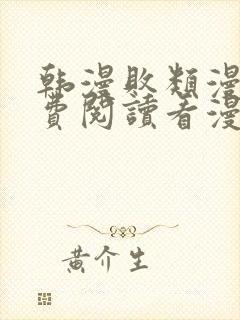 韩漫败类漫
费阅读者漫
黄介生